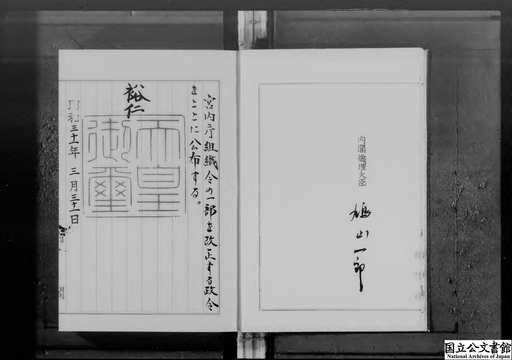 宮内庁組織令の一部を改正する政令
をここに公布する。
裕仁
天皇
御璽
昭和三十一年三月三十一日
内閣総理大臣
鳩山一郎
国立公文書館
National Archives of Japan